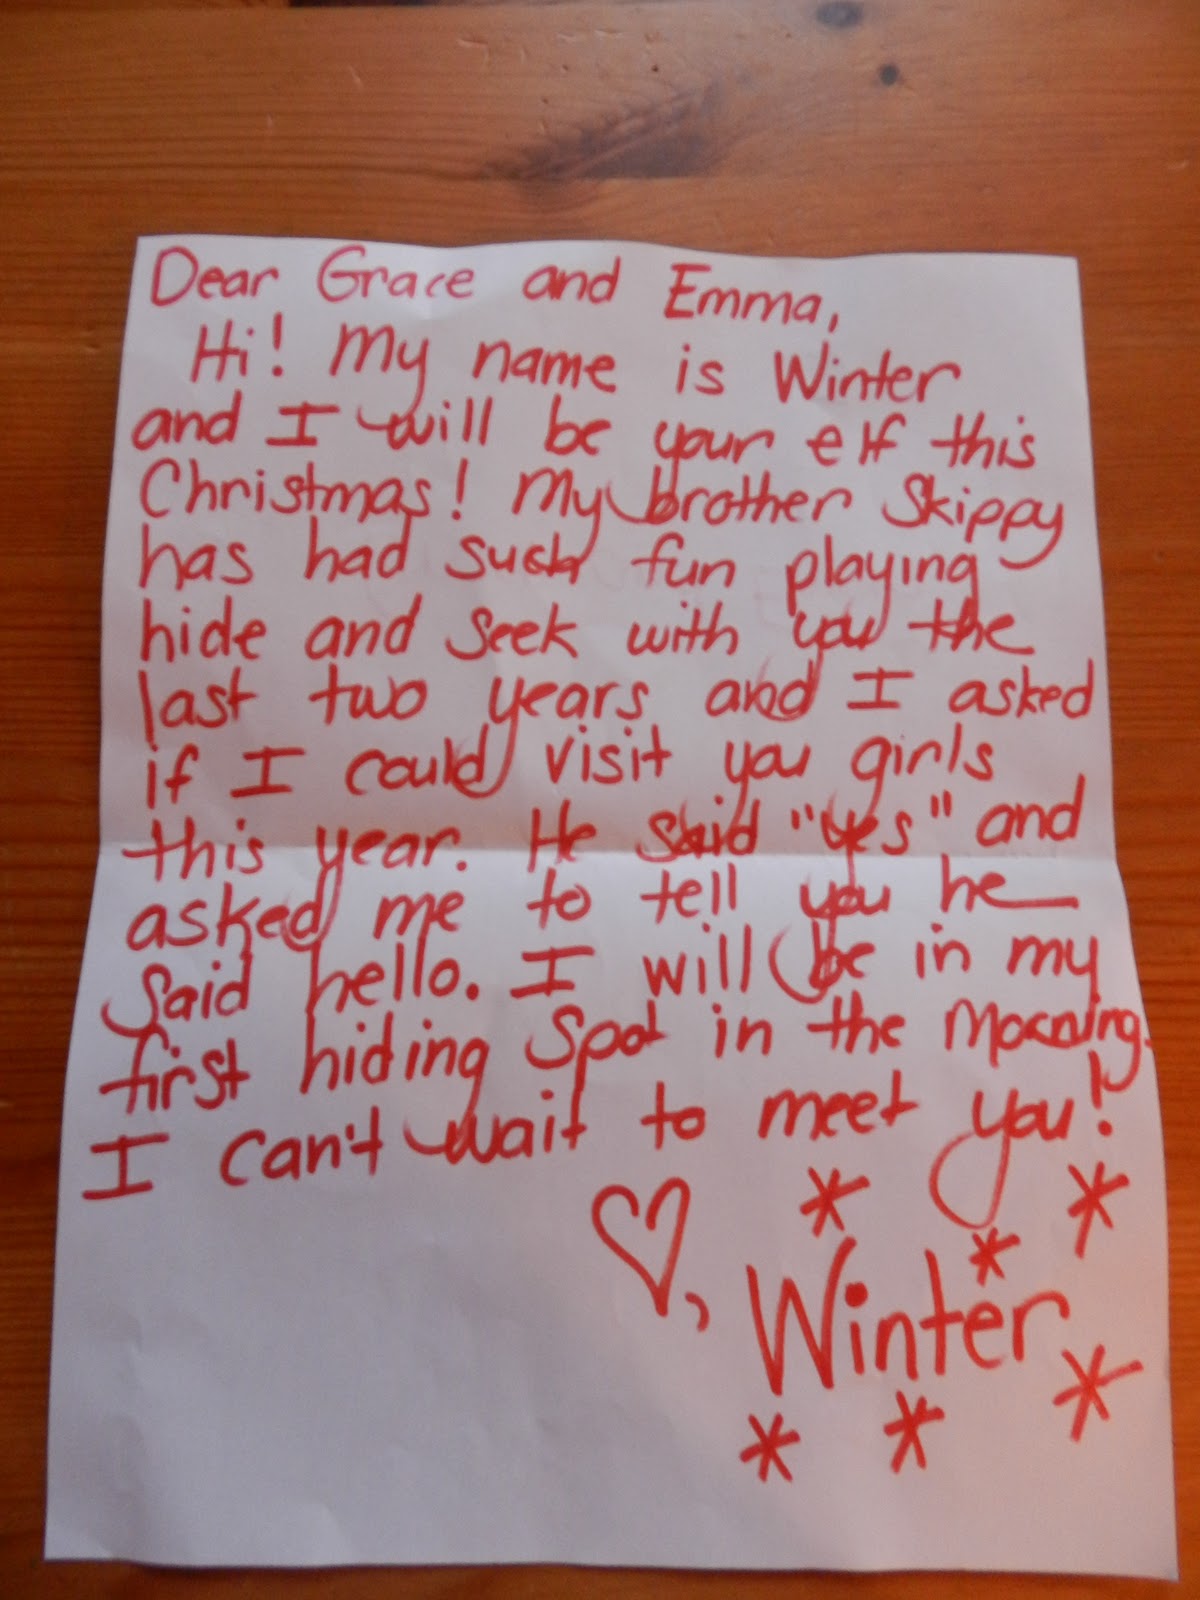 Dear Grace and Emma,
Hi! My name is Winter
and I will be your elf this
Christmas! My brother Skippy
has had such fun playing
hide and seek with you the
last two years and I asked
if I could visit you girls
this year. He said "yes" and
asked me to tell you he
said hello. I will be in my
first hiding spot in the morning.
I can't wait to meet you!
♡,
Winter